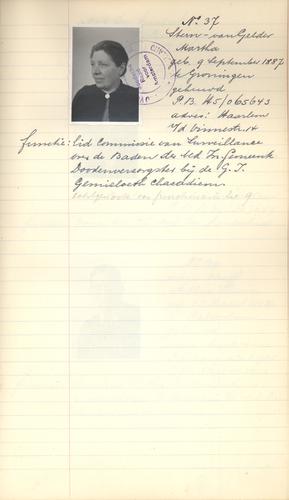 No. 37
Stern-van Gelder
Martha
geb. 9 September 1887
te Groningen
gehuwd
P.B. H5/065643
adres: Haarlem
v/d Vinnestr. 14
functie: Lid Commissie van Surveillance
over de Baden der Ned. Isr. Gemeente
Doodenverzorgster bij de G. I.
Gemieloeth Chasadiem.